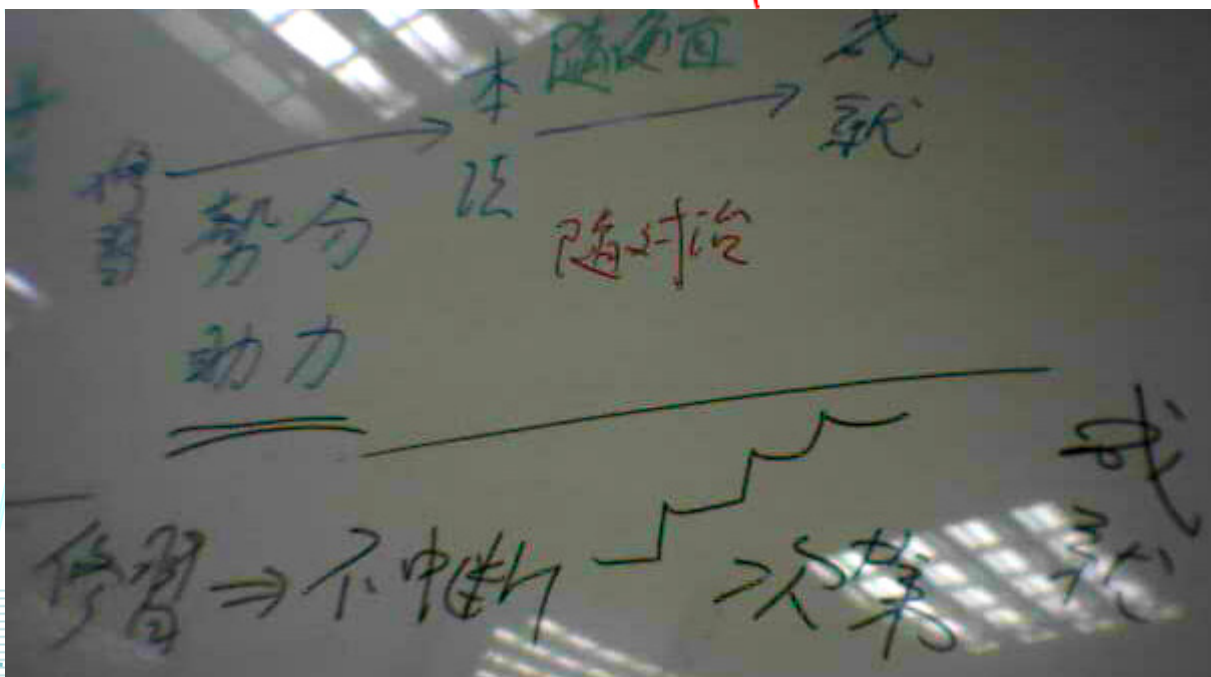 修習 → 本法 隨便宜 → 成就
勢分
助力
隨対治
修習 ⇒ 不中断 次第 成就